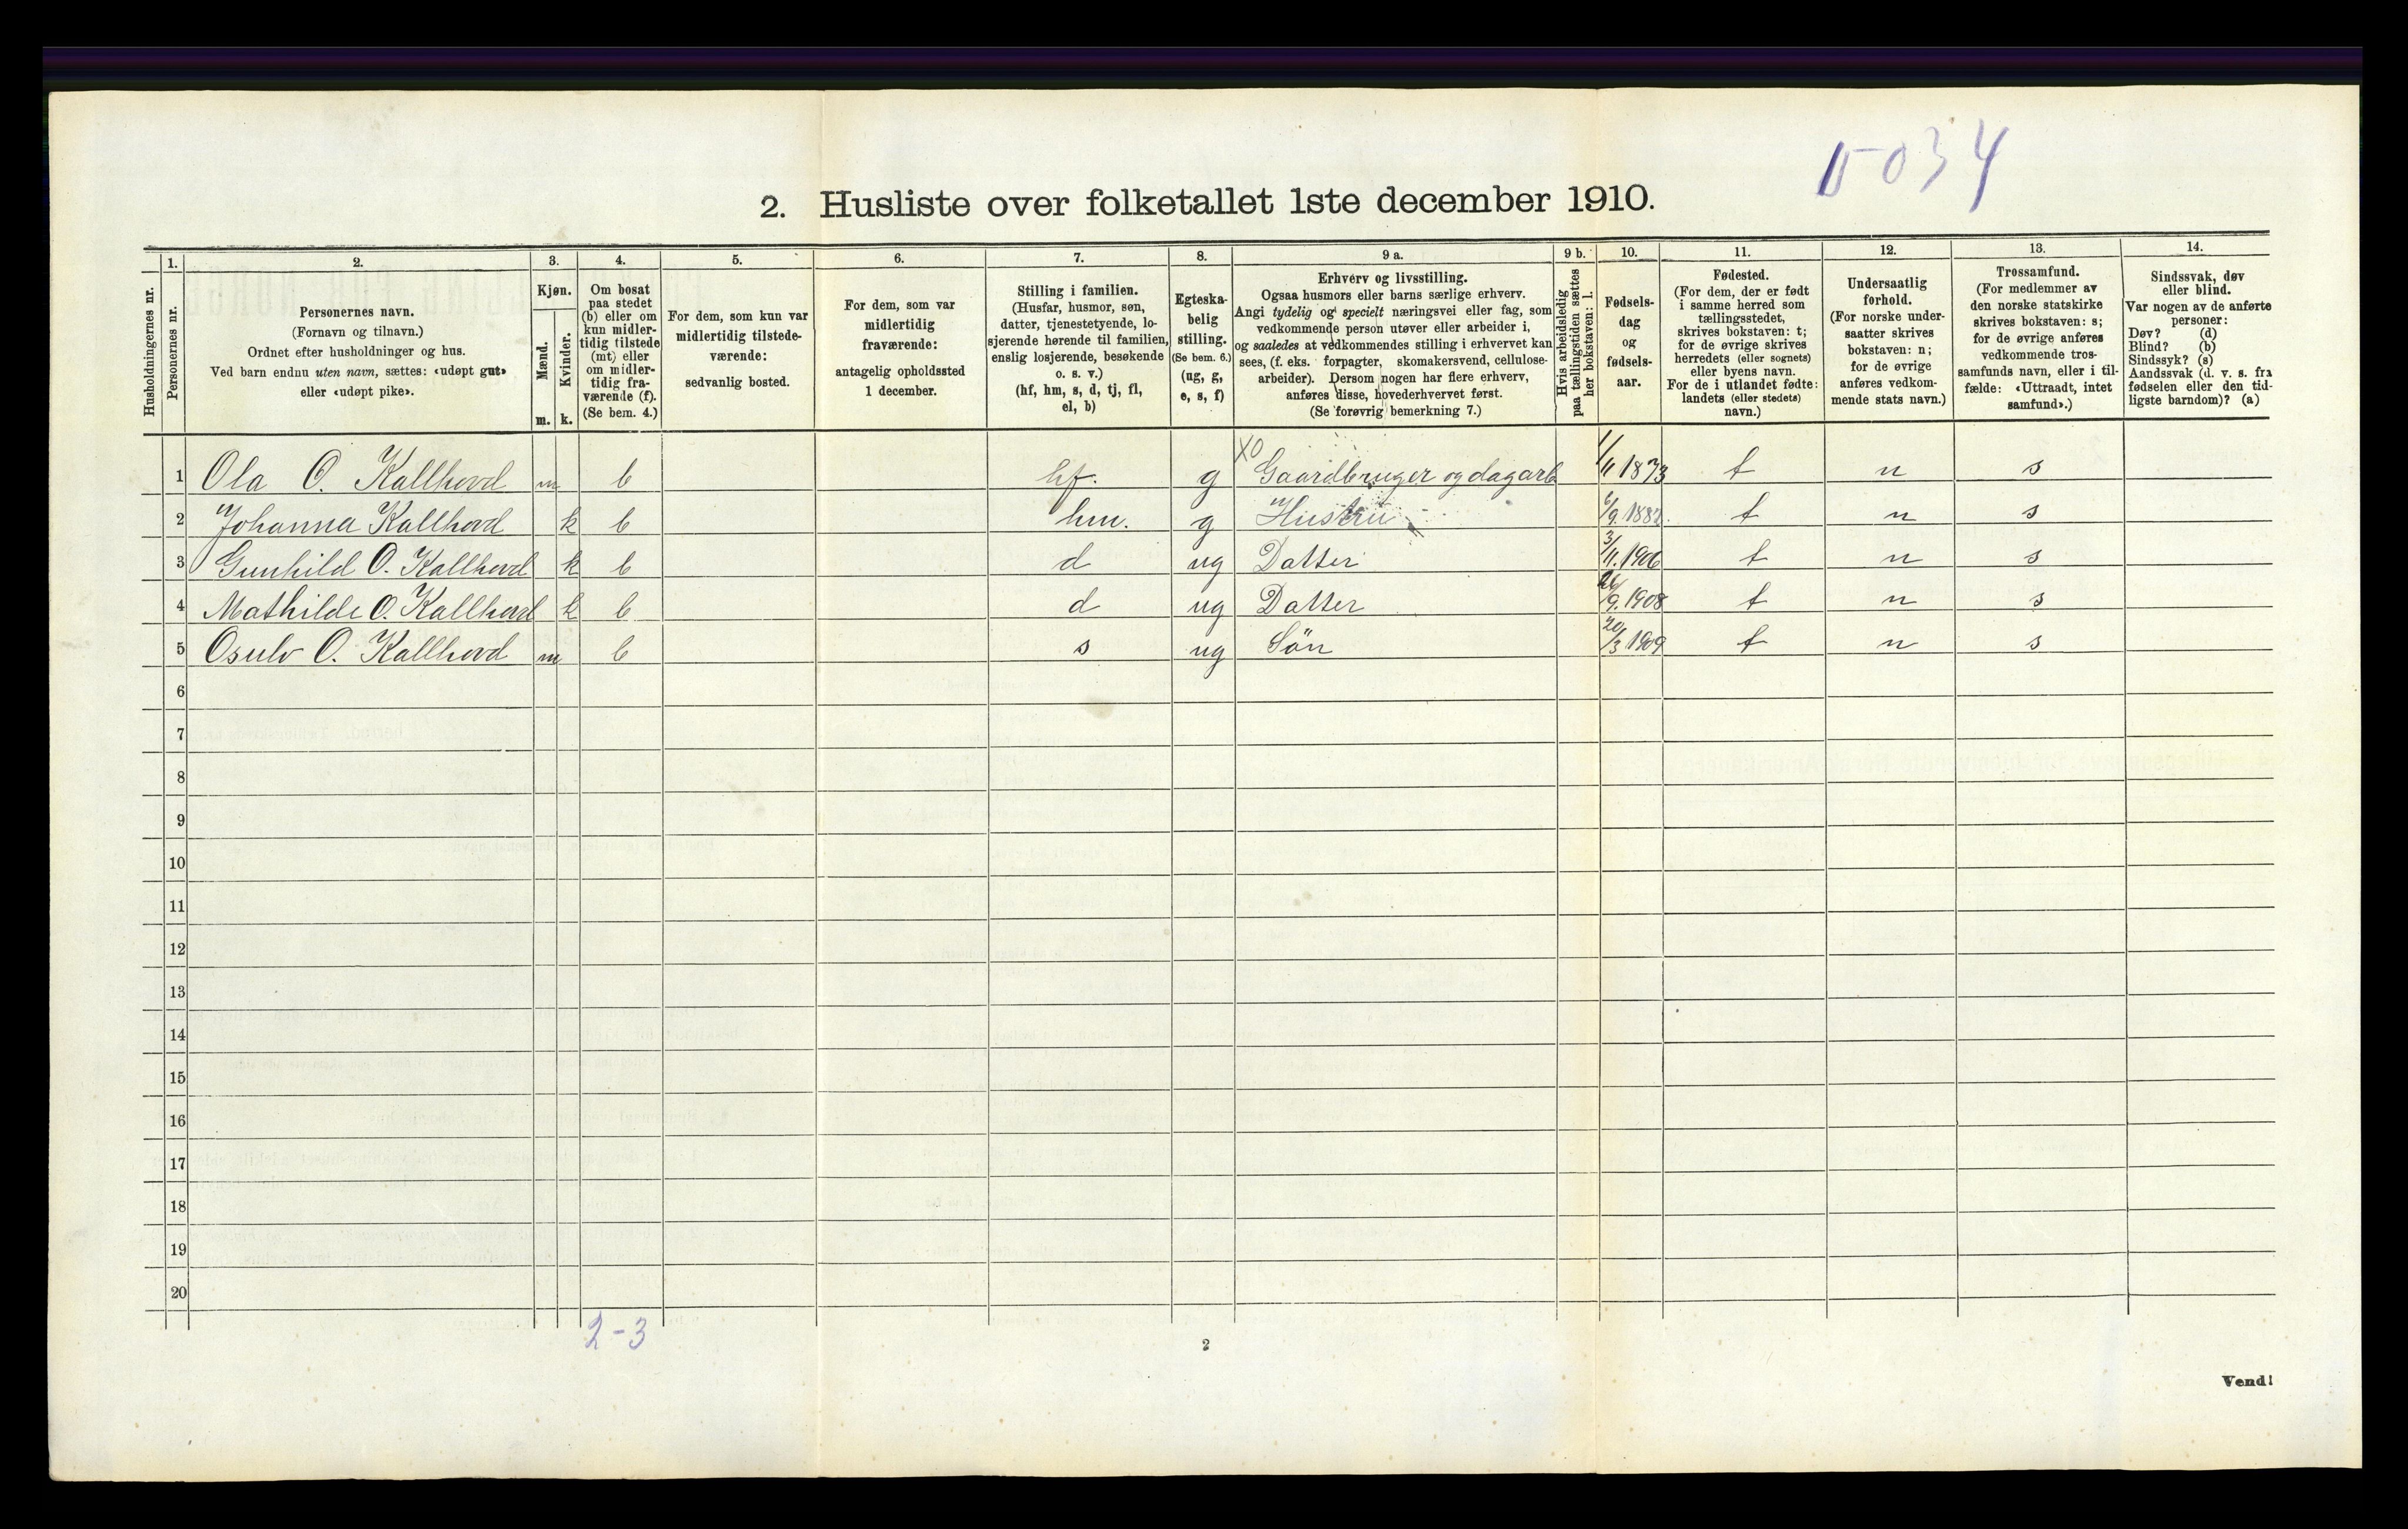 5034
2. Husliste over folketallet 1ste december 1910.
Husholdningernes nr.
1.
Personernes nr.
2.
Personernes navn.
(Fornavn og tilnavn.)
Ordnet efter husholdninger og hus.
Ved barn endnu uten navn, sættes: «udøpt gut»
eller «udøpt pike».
3.
Kjøn.
Mænd.
m.
Kvinder.
k.
4.
Om bosat
paa stedet
(b) eller om
kun midler-
tidig tilstede
(mt) eller
om midler-
tidig fra-
værende (f).
(Se bem. 4.)
5.
For dem, som kun var
midlertidig tilstede-
værende:
sedvanlig bosted.
6.
For dem, som var
midlertidig
fraværende:
antagelig opholdssted
1 december.
7.
Stilling i familien.
(Husfar, husmor, søn,
datter, tjenestetyende, lo-
sjerende hørende til familien,
enslig losjerende, besøkende
o. s. v.)
(hf, hm, s, d, tj, fl,
el, b)
8.
Egteska-
belig
stilling.
(Se bem. 6.)
(ug, g,
e, s, f)
9 a.
Erhverv og livsstilling.
Ogsaa husmors eller barns særlige erhverv.
Angi tydelig og specielt næringsvei eller fag, som
vedkommende person utøver eller arbeider i,
og saaledes at vedkommendes stilling i erhvervet kan
sees, (f. eks. forpagter, skomakersvend, cellulose-
arbeider). Dersom nogen har flere erhverv,
anføres disse, hovederhvervet først.
(Se forøvrig bemerkning 7.)
9 b.
Hvis arbeidsledig
paa tællingstiden sættes
her bokstaven: l.
10.
Fødsels-
dag
og
fødsels-
aar.
11.
Fødested.
(For dem, der er født
i samme herred som
tællingsstedet,
skrives bokstaven: t;
for de øvrige skrives
herredets (eller sognets)
eller byens navn.
For de i utlandet fødte:
landets (eller stedets)
navn.)
12.
Undersaatlig
forhold.
(For norske under-
saatter skrives
bokstaven: n;
for de øvrige
anføres vedkom-
mende stats navn.)
13.
Trossamfund.
(For medlemmer av
den norske statskirke
skrives bokstaven: s;
for de øvrige anføres
vedkommende tros-
samfunds navn, eller i til-
fælde: «Uttraadt, intet
samfund».)
14.
Sindssvak, døv
eller blind.
Var nogen av de anførte
personer:
Døv? (d)
Blind? (b)
Sindssyk? (s)
Aandssvak (d. v. s. fra
fødselen eller den tid-
ligste barndom)? (a)
1 Ola O. Kallhovd m b hf. g XO Gaardbruger og dagarb 1/11 1873 t n s
2 Johanna Kallhovd k b hm. g Hustru 6/9. 1882. t n s
3 Gunhild O. Kallhovd k b d ug Datter 3/11. 1906 t n s
4 Mathilde O. Kallhovd k b d ug Datter 26/9. 1908 t n s
5 Osulv O. Kallhovd m b s ug Sön 20/3 1909 t n s
6
7
8
9
10
11
12
13
14
15
16
17
18
19
20
2-3
2
Vend!